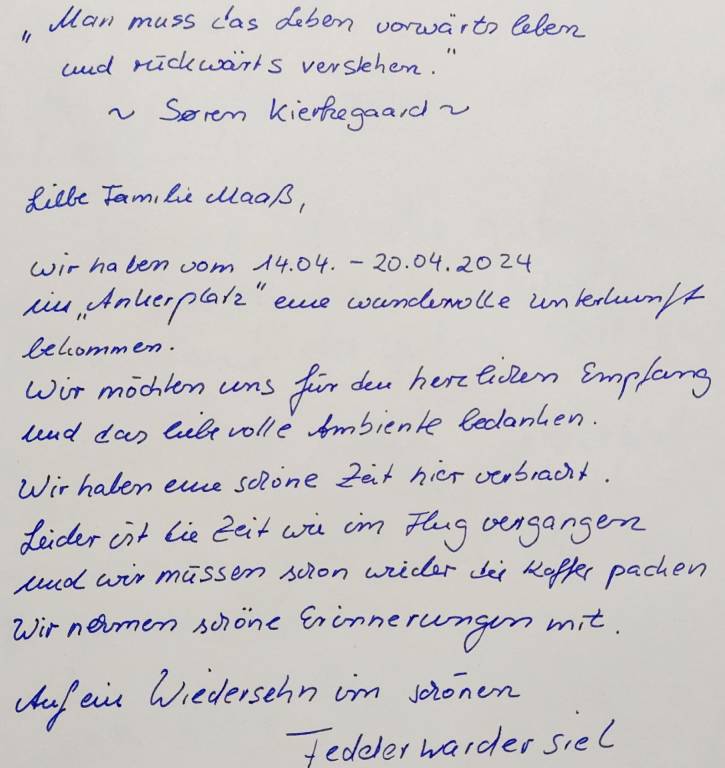 „Man muss das Leben vorwärts leben
und rückwärts verstehen.“
~ Søren Kierkegaard ~
Liebe Familie Maaß,
wir haben vom 14.04. – 20.04.2024
im „Ankerplatz“ eine wundervolle Unterkunft
bekommen.
Wir möchten uns für den herzlichen Empfang
und das liebevolle Ambiente bedanken.
Wir haben eine schöne Zeit hier verbracht.
Leider ist die Zeit wie im Flug vergangen
und wir müssen schon wieder die Koffer packen
Wir nehmen schöne Erinnerungen mit.
Auf ein Wiedersehn im schönen
Fedderwardersiel